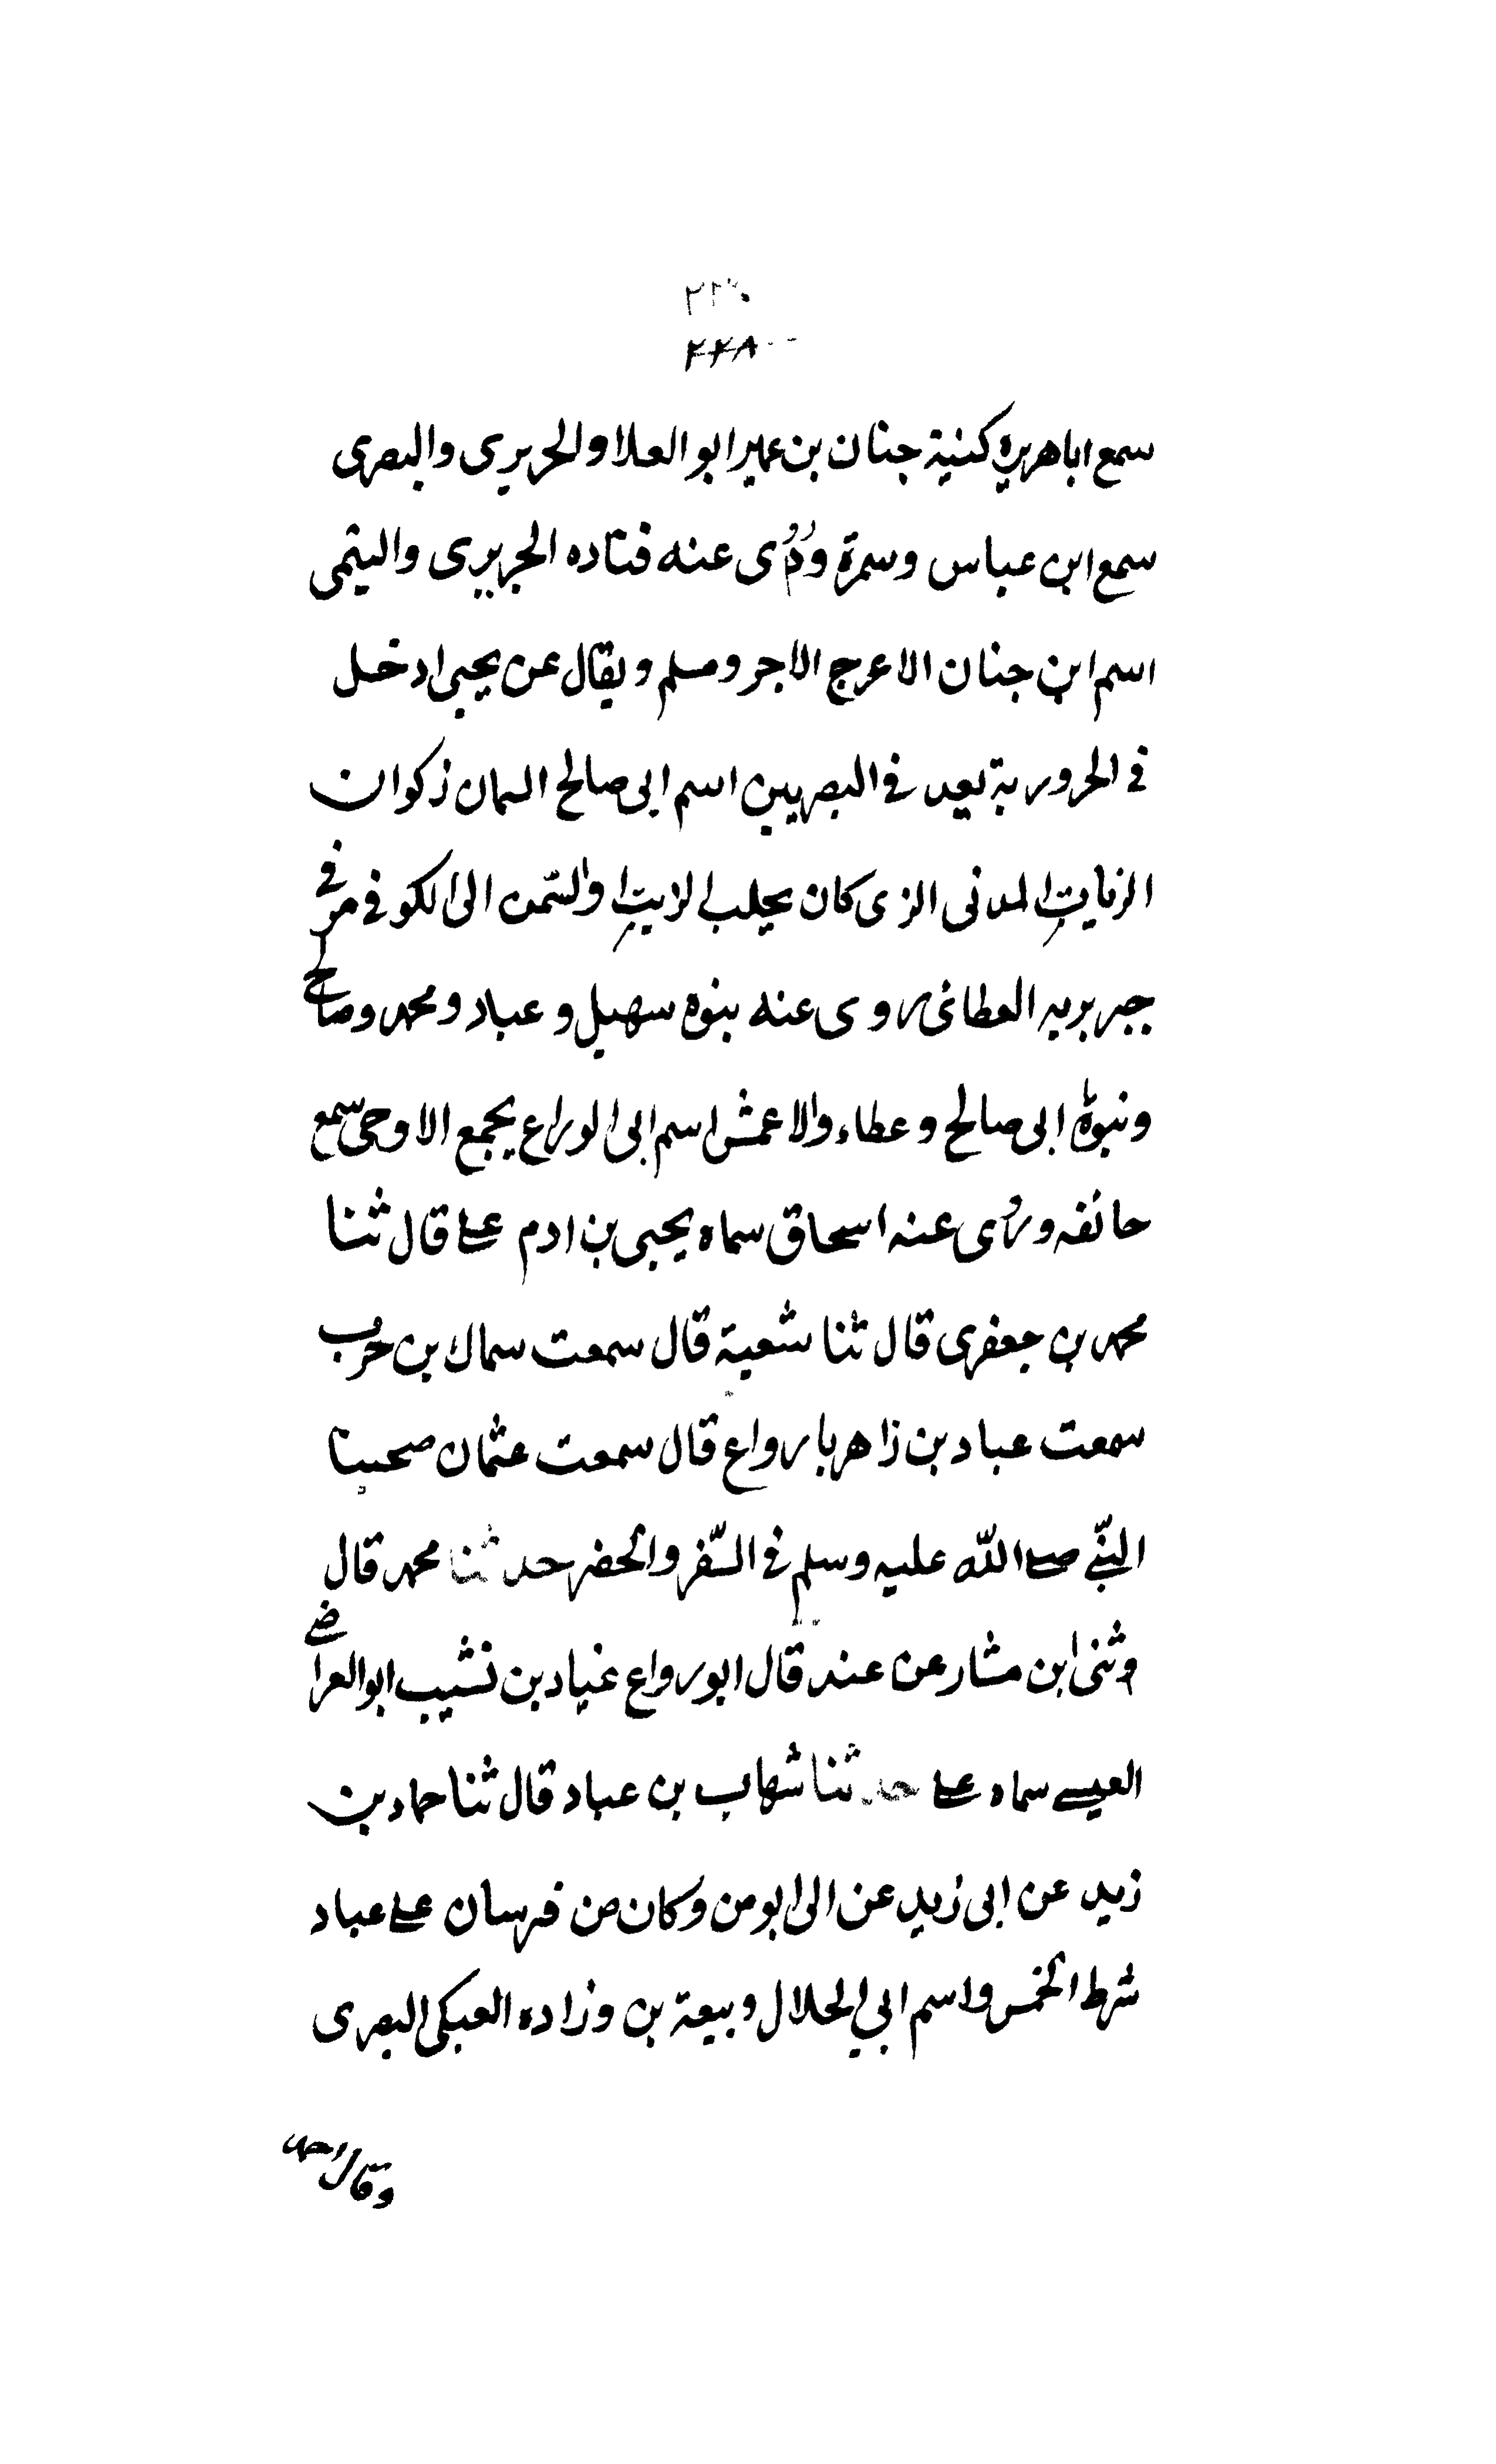 ٢٢٨
سمع اباهريرة كنية جنان بن عمير ابو العلاو الحريري والبصرى
سمع ابن عباس وسمرة وروى عنه قتاده الجريرى والتيمى
اسم ابن جنان الاعرج الاجرد مسلم ويقال عن يحيى ادخل
فى الحرورية يعد فى البصريين اسم ابى صالح السمان ذكوان
الزيات المدنى الزى كان يجلب الزيت والسّمن الى الكوفى مر فى
جبر بريه الغطانى روى عنه بنوه سهيل و عباد ومحمد وصالح
ونبوة ابى صالح وعطاء والاعمش اسم ابى الوراع يجمع الاوحى سمع
حانفه وروى عنه اسحاق سماه يحيى بن ادم على قال ثنا
محمد بن جعفرى قال ثنا شعبة قال سمعت سماك بن حرب
سمعت عباد بن زاهر بارواع قال سمعت عثمان صحبنا
النبّى صلى اللّه عليه وسلم فى السّفر والحضر حدثنا محمد قال
وثنى ابن مشار عن عند قال ابورواع عباد بن نشيب ابوالعراضى
العيسى سماه على حدثنا شهاب بن عباد قال ثنا حماد بن
زيد عن ابى زيد عن الى ابو من وكان من فرسان على عباد
شرط الخمس واسم ابي الحلال وبيعة بن وزاده العبكى البصرى
وقال احمد